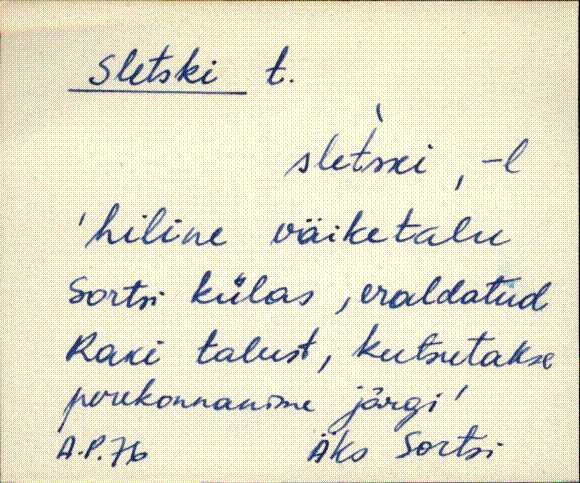 Sletski t.
slet̀ski, -l
'hiline väiketalu
Sortsi külas, eraldatud
Raxi talust, kutsutakse
perekonnanime järgi'
A.P. 76 Äks Sortsi